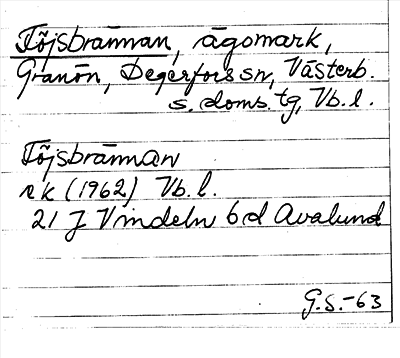 Töjsbrännan, ägomark,
Granön, Degerfors sn, Västerb.
s. doms. tg, Vb. l.
Töjsbrännan
ek (1962) Vb. l.
21 J Vindeln 6d Avalund
G.S.-63